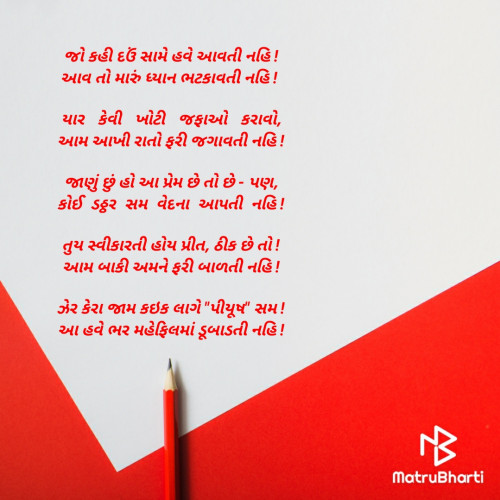 જો કહી દઉં સામે હવે આવતી નહિ !
આવ તો મારું ધ્યાન ભટકાવતી નહિ !
યાર કેવી ખોટી જફાઓ કરાવો,
આમ આખી રાતો ફરી જગાવતી નહિ !
જાણું છું હો આ પ્રેમ છે તો છે - પણ,
કોઈ ડઠ્ઠર સમ વેદના આપતી નહિ !
તુય સ્વીકારતી હોય પ્રીત, ઠીક છે તો !
આમ બાકી અમને ફરી બાળતી નહિ !
ઝેર કેરા જામ કઇક લાગે "પીયૂષ" સમ !
આ હવે ભર મહેફિલમાં ડૂબાડતી નહિ !
MatruBharti